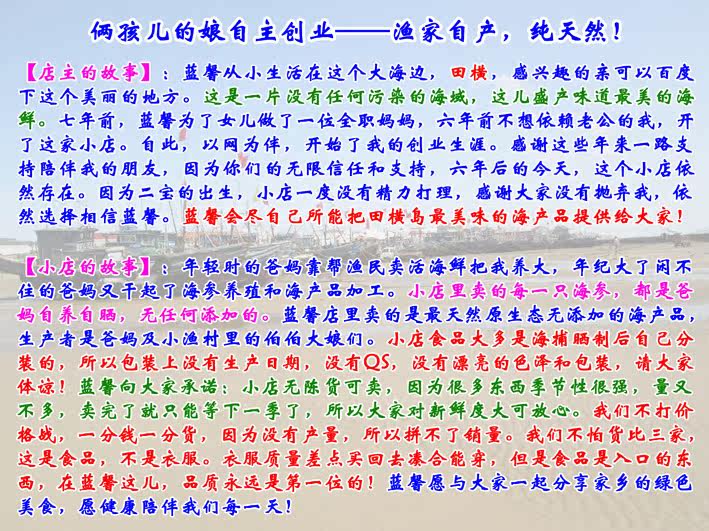 俩孩儿的娘自主创业——渔家自产，纯天然！
【店主的故事】：蓝馨从小生活在这个大海边，田横，感兴趣的亲可以百度
下这个美丽的地方。这是一片没有任何污染的海域，这儿盛产味道最美的海
鲜。七年前，蓝馨为了女儿做了一位全职妈妈，六年前不想依赖老公的我，开
了这家小店。自此，以网为伴，开始了我的创业生涯。感谢这些年来一路支
持陪伴我的朋友，因为你们的无限信任和支持，六年后的今天，这个小店依
然存在。因为二宝的出生，小店一度没有精力打理，感谢大家没有抛弃我，依
然选择相信蓝馨。蓝馨会尽自己所能把田横岛最美味的海产品提供给大家！
【小店的故事】：年轻时的爸妈靠帮渔民卖活海鲜把我养大，年纪大了闲不
住的爸妈又干起了海参养殖和海产品加工。小店里卖的每一只海参，都是爸
妈自养自晒，无任何添加的。蓝馨店里卖的是最天然原生态无添加的海产品，
生产者是爸妈及小渔村里的伯伯大娘们。小店食品大多是海捕晒制后自己分
装的，所以包装上没有生产日期，没有QS，没有漂亮的色泽和包装，请大家
体谅！蓝馨向大家承诺：小店无陈货可卖，因为很多东西季节性很强，量又
不多，卖完了就只能等下一季了，所以大家对新鲜度大可放心。我们不打价
格战，一分钱一分货，因为没有产量，所以拼不了销量。我们不怕货比三家，
这是食品，不是衣服。衣服质量差点买回去凑合能穿，但是食品是入口的东
西，在蓝馨这儿，品质永远是第一位的！蓝馨愿与大家一起分享家乡的绿色
美食，愿健康陪伴我们每一天！